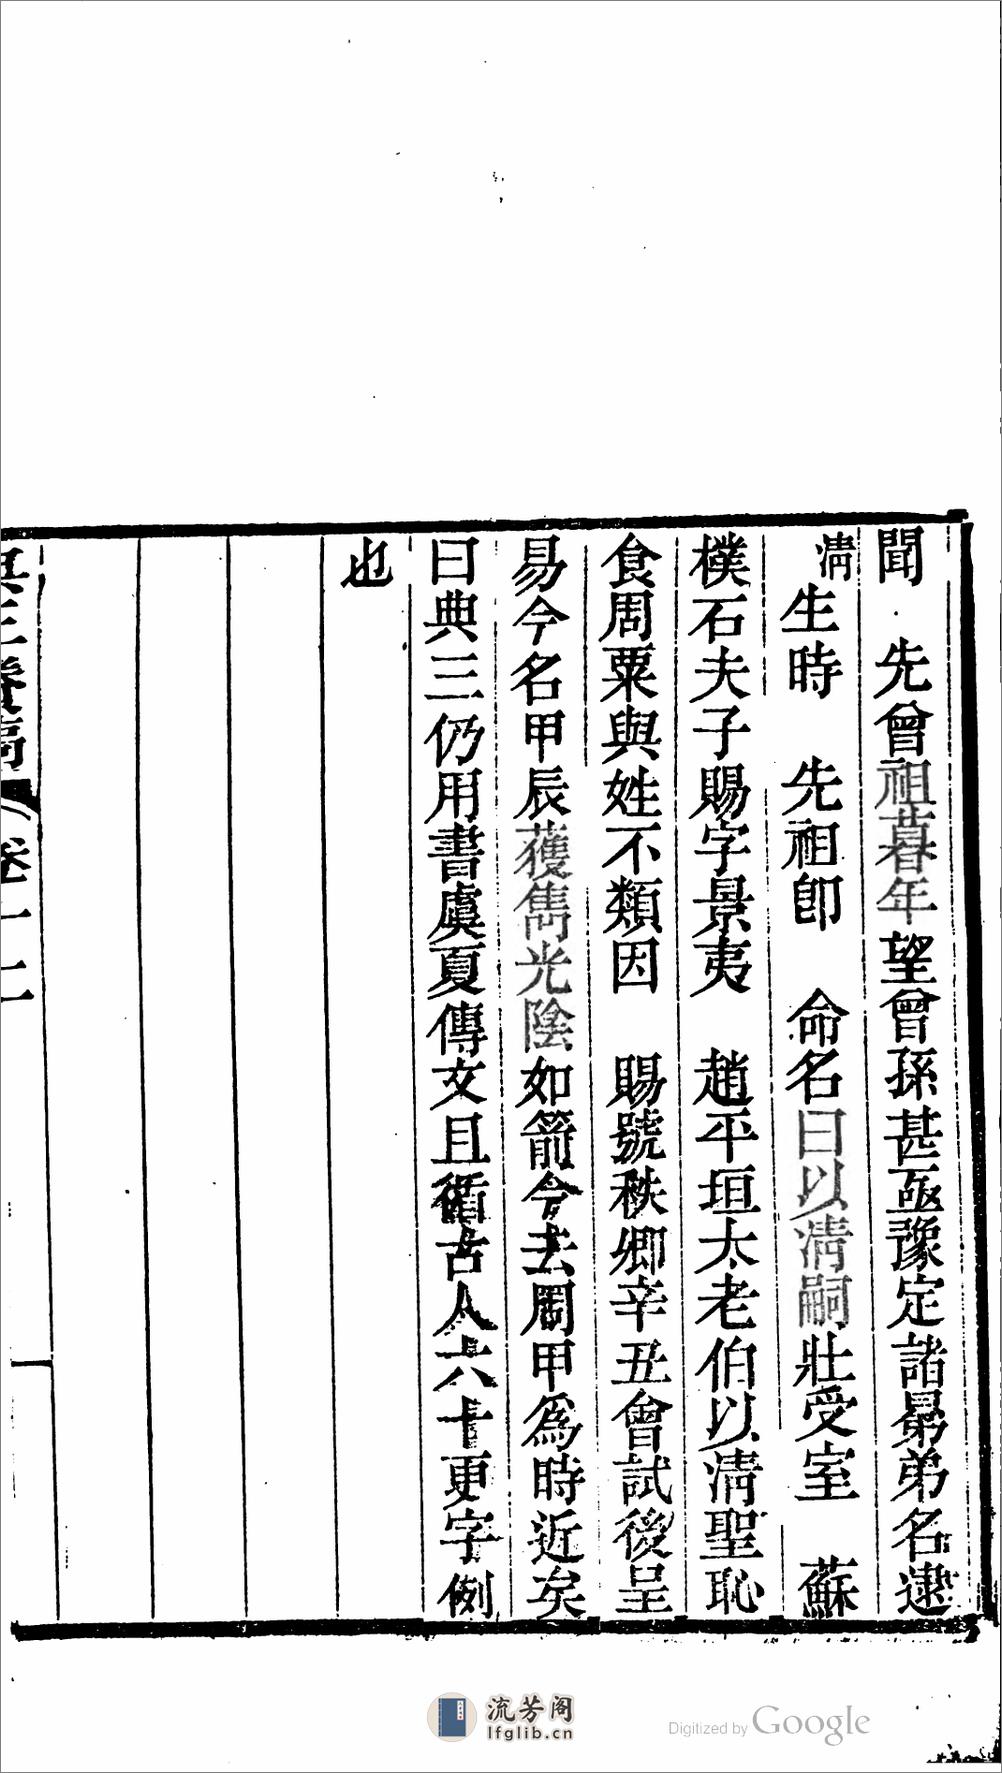 聞　先曾祖暮年望曾孫甚亟豫定諸晜弟名逮
清生時　先祖卽　命名曰以淸嗣壯受室　蘇
樸石夫子賜字景夷　趙平垣太老伯以淸聖恥
食周粟與姓不類因　賜號秩卿辛丑會試後呈
易今名甲辰獲雋光陰如箭今去周甲爲時近矣
曰典三仍用書虞夏傳文且循古人六十更字例
也
典三賸稿 卷十二
流芳阁
lfglib.cn
Digitized by Google